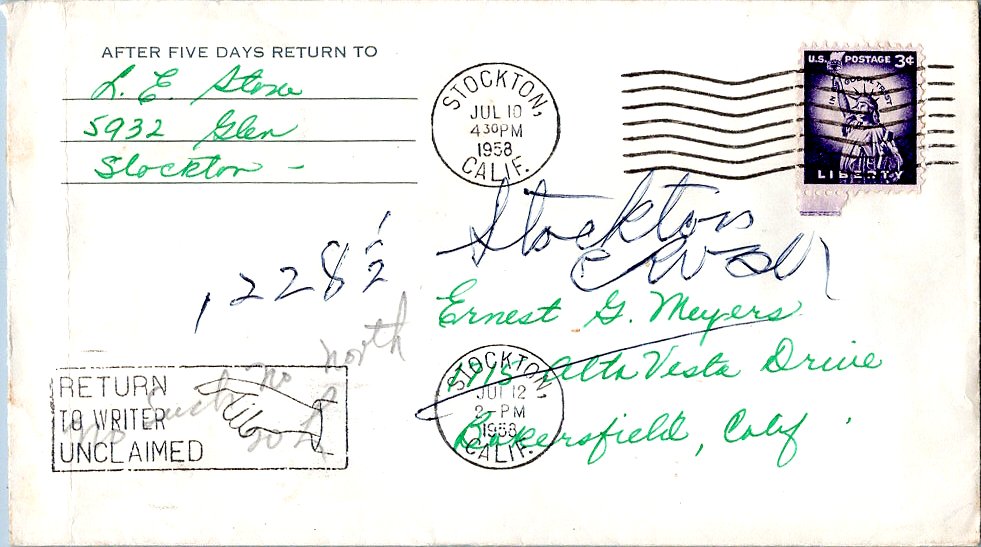 AFTER FIVE DAYS RETURN TO
L. E. Stone
5932 Glen
Stockton -
STOCKTON,
JUL 10
430PM
1958
CALIF.
U.S. POSTAGE 3¢
IN GOD WE TRUST
LIBERTY
Stockton
228 1/2
Ernest G. Meyers
1915 Alta Vista Drive
Bakersfield, Calif
STOCKTON,
JUL 12
2- PM
1958
CALIF.
No Such no north
RETURN
TO WRITER
UNCLAIMED